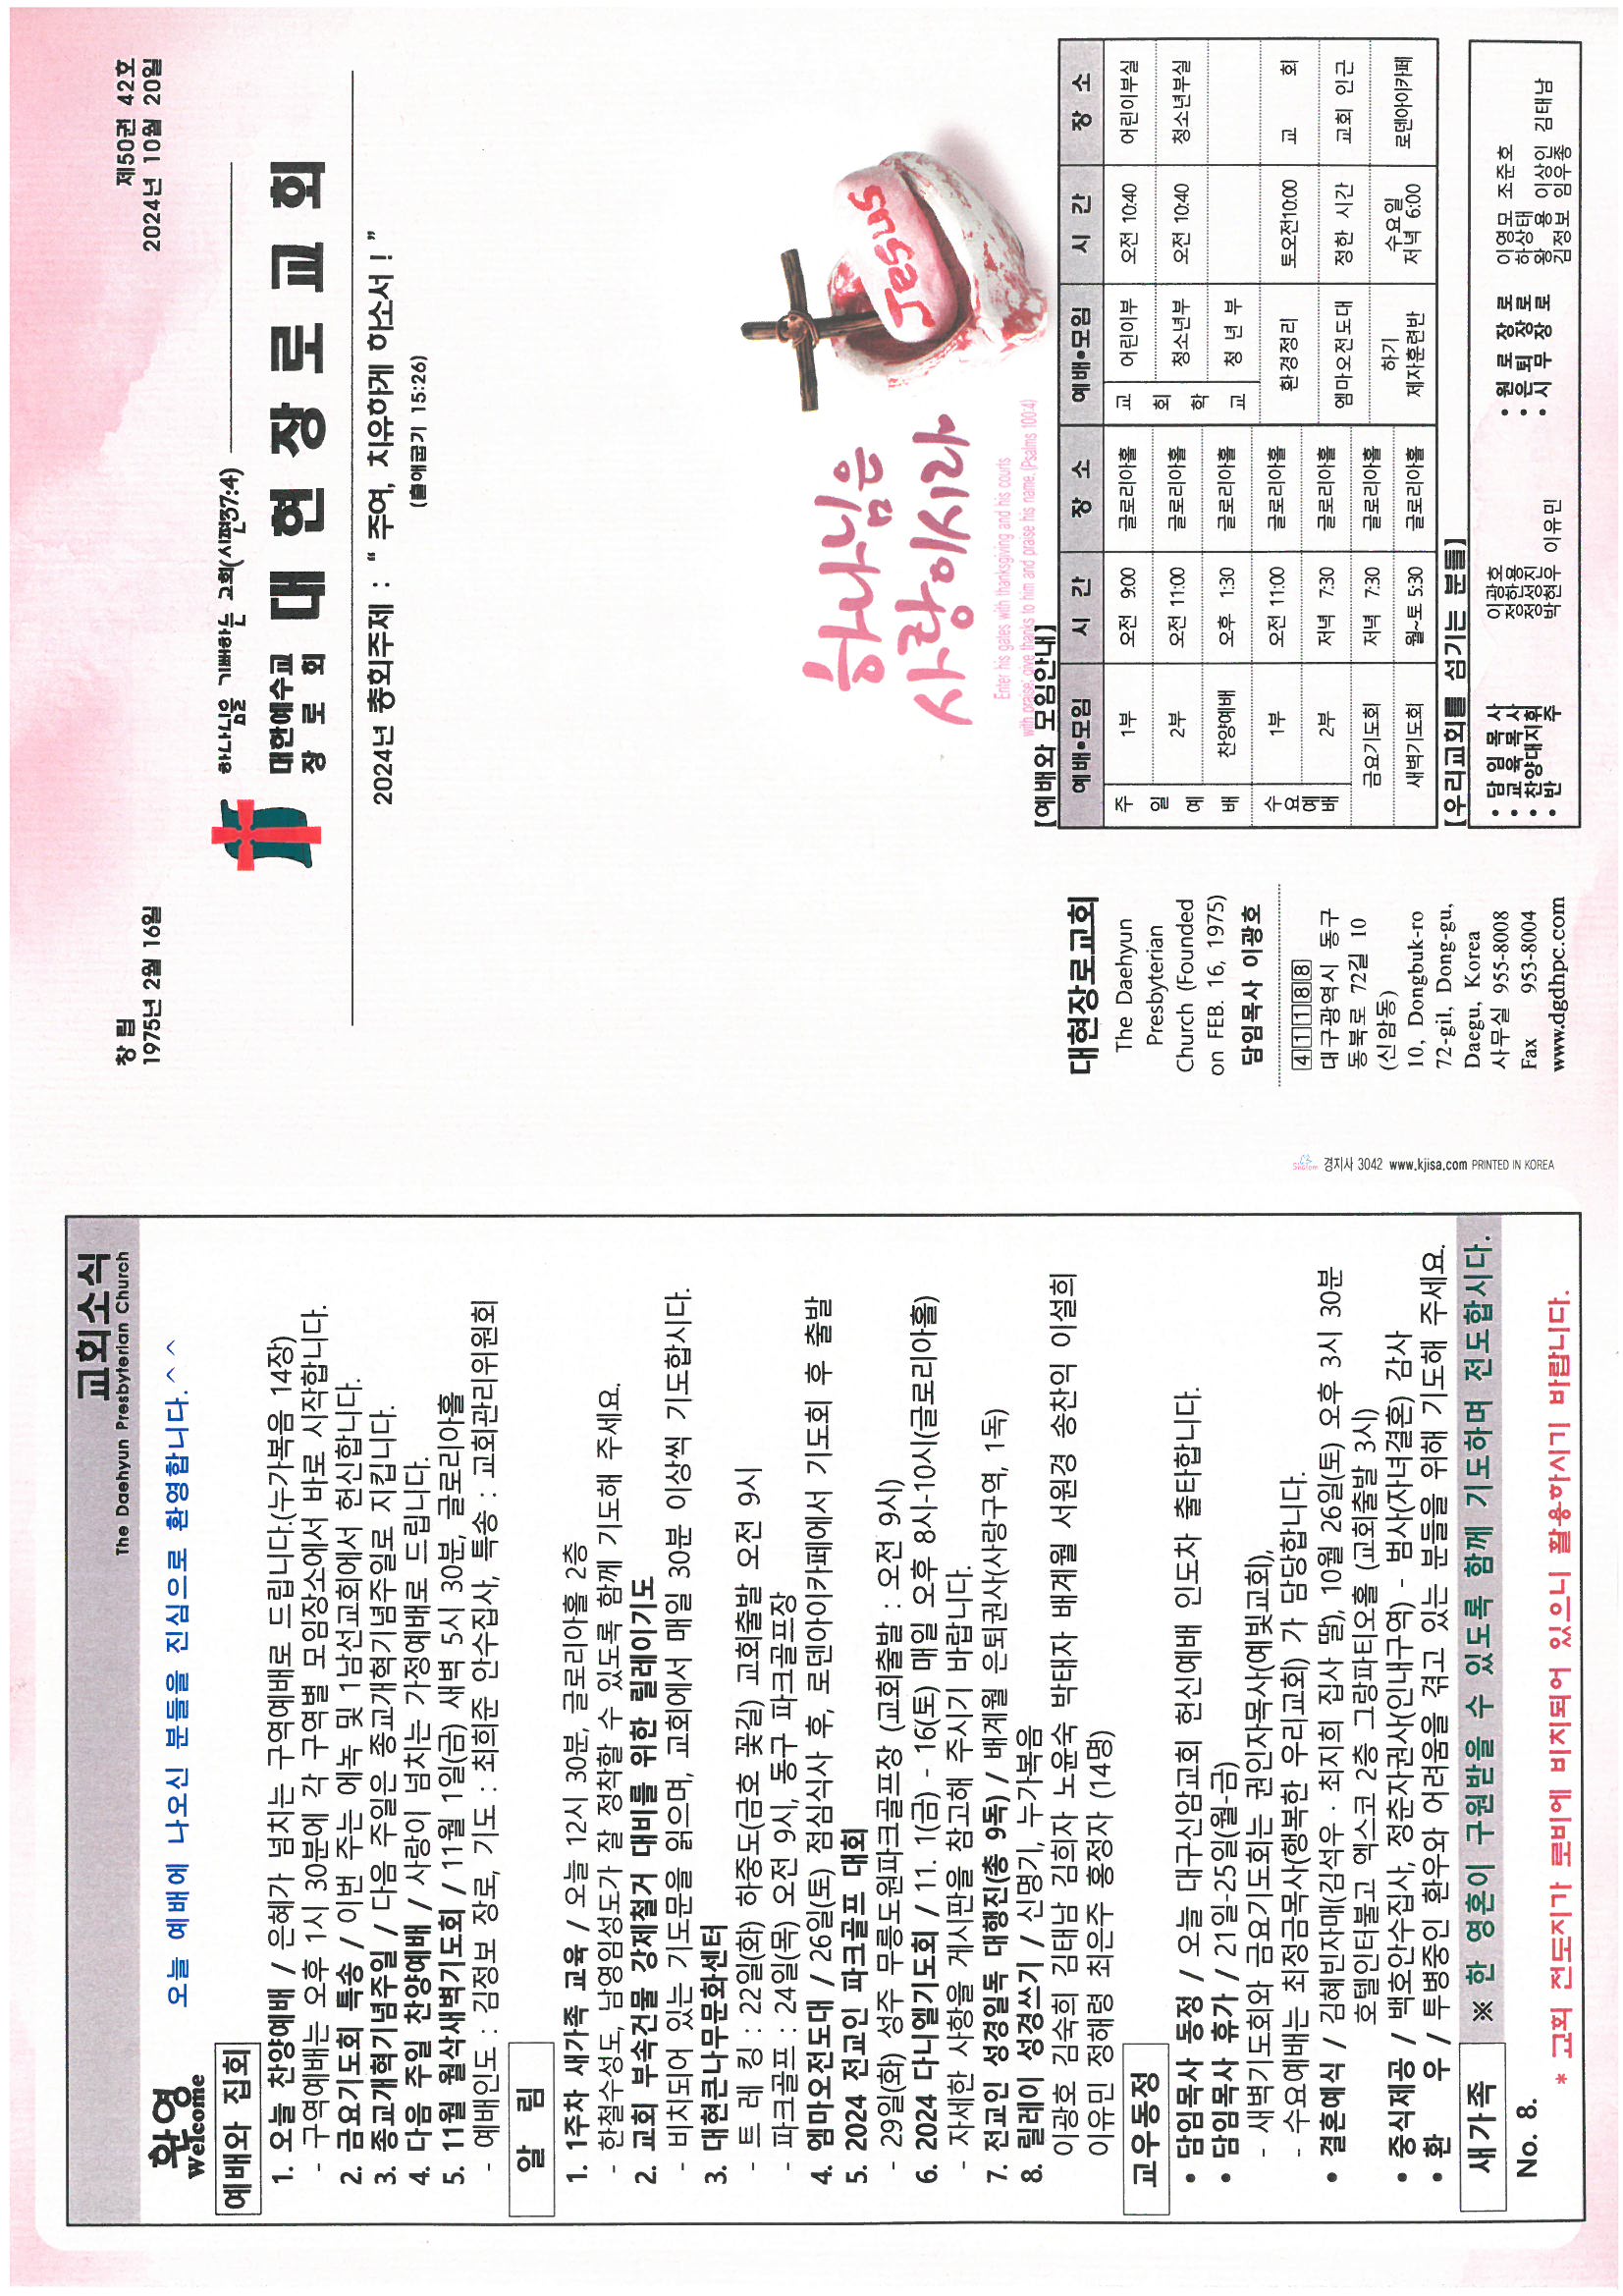 교회소식
The Daehyun Presbyterian Church
환영
welcome
오늘 예배에 나오신 분들을 진심으로 환영합니다.^^
예배와 집회
1. 오늘 찬양예배 / 은혜가 넘치는 구역예배로 드립니다.(누가복음 14장)
- 구역예배는 오후 1시 30분에 각 구역별 모임장소에서 바로 시작합니다.
2. 금요기도회 특송 / 이번 주는 에녹 및 1남선교회에서 헌신합니다.
3. 종교개혁기념주일 / 다음 주일은 종교개혁기념주일로 지킵니다.
4. 다음 주일 찬양예배 / 사랑이 넘치는 가정예배로 드립니다.
5. 11월 월삭새벽기도회 / 11월 1일(금) 새벽 5시 30분, 글로리아홀
- 예배인도 : 김정보 장로, 기도 : 최희준 안수집사, 특송 : 교회관리위원회
알 림
1. 1주차 새가족 교육 / 오늘 12시 30분, 글로리아홀 2층
- 한철수성도, 남영임성도가 잘 정착할 수 있도록 함께 기도해 주세요.
2. 교회 부속건물 강제철거 대비를 위한 릴레이기도
- 비치되어 있는 기도문을 읽으며, 교회에서 매일 30분 이상씩 기도합시다.
3. 대현큰나무문화센터
- 트 레 킹 : 22일(화) 하중도(금호 꽃길) 교회출발 오전 9시
- 파크골프 : 24일(목) 오전 9시, 동구 파크골프장
4. 엠마오전도대 / 26일(토) 점심식사 후, 로덴아이카페에서 기도회 후 출발
5. 2024 전교인 파크골프 대회
- 29일(화) 성주 무릉도원파크골프장 (교회출발 : 오전 9시)
6. 2024 다니엘기도회 / 11. 1(금) - 16(토) 매일 오후 8시-10시(글로리아홀)
- 자세한 사항을 게시판을 참고해 주시기 바랍니다.
7. 전교인 성경일독 대행진(총 9독) / 배계월 은퇴권사(사랑구역, 1독)
8. 릴레이 성경쓰기 / 신명기, 누가복음
이광호 김숙희 김태남 김희자 노윤숙 박태자 배계월 서원경 송찬익 이설희
이유민 정해령 최은주 홍정자 (14명)
교우동정
• 담임목사 동정 / 오늘 대구신암교회 헌신예배 인도차 출타합니다.
• 담임목사 휴가 / 21일-25일(월-금)
- 새벽기도회와 금요기도회는 권인자목사(예빛교회),
- 수요예배는 최정금목사(행복한 우리교회) 가 담당합니다.
• 결혼예식 / 김혜빈자매(김석우 · 최지희 집사 딸), 10월 26일(토) 오후 3시 30분
호텔인터불고 엑스코 2층 그랑파티오홀 (교회출발 3시)
• 중식제공 / 백호안수집사, 정춘자권사(인내구역) - 범사(자녀결혼) 감사
• 환 우 / 투병중인 환우와 어려움을 겪고 있는 분들을 위해 기도해 주세요.
새가족
※ 한 영혼이 구원받을 수 있도록 함께 기도하며 전도합시다.
No. 8.
* 교회 전도지가 로비에 비치되어 있으니 활용하시기 바랍니다.
창 립
1975년 2월 16일
제50권 42호
2024년 10월 20일
하나님을 기뻐하는 교회(시편37:4)
대한예수교
장 로 회
대 현 장 로 교 회
2024년 총회주제 : “ 주여, 치유하게 하소서 ! ”
(출애굽기 15:26)
Jesus
하나님은
사랑이시라
Enter his gates with thanksgiving and his courts
with praise; give thanks to him and praise his name.(Psalms 100:4)
대현장로교회
The Daehyun
Presbyterian
Church (Founded
on FEB. 16, 1975)
담임목사 이광호
41188
대구광역시 동구
동북로 72길 10
(신암동)
10, Dongbuk-ro
72-gil, Dong-gu,
Daegu, Korea
사무실 955-8008
Fax 953-8004
www.dgdhpc.com
[예배와 모임안내]
예배•모임 시 간 장 소 예배•모임 시 간 장 소
주일예배 1부 오전 9:00 글로리아홀 교회학교 어린이부 오전 10:40 어린이부실
2부 오전 11:00 글로리아홀 청소년부 오전 10:40 청소년부실
찬양예배 오후 1:30 글로리아홀 청 년 부
수요예배 1부 오전 11:00 글로리아홀 환경정리 토오전10:00 교 회
2부 저녁 7:30 글로리아홀 엠마오전도대 정한 시간 교회 인근
금요기도회 저녁 7:30 글로리아홀 하기 제자훈련반 수요일 저녁 6:00 로덴아이카페
새벽기도회 월~토 5:30 글로리아홀
[우리교회를 섬기는 분들]
• 담 임 목 사 이광호
• 교 육 목 사 정한용
• 찬양대지휘 정선진
• 반 주 박현우 이유민
• 원 로 장 로 이영모 조준호
• 은 퇴 장 로 하상태
• 시 무 장 로 왕 용 이상인 김태남
김정보 임우종
경지사 3042 www.kjisa.com PRINTED IN KOREA